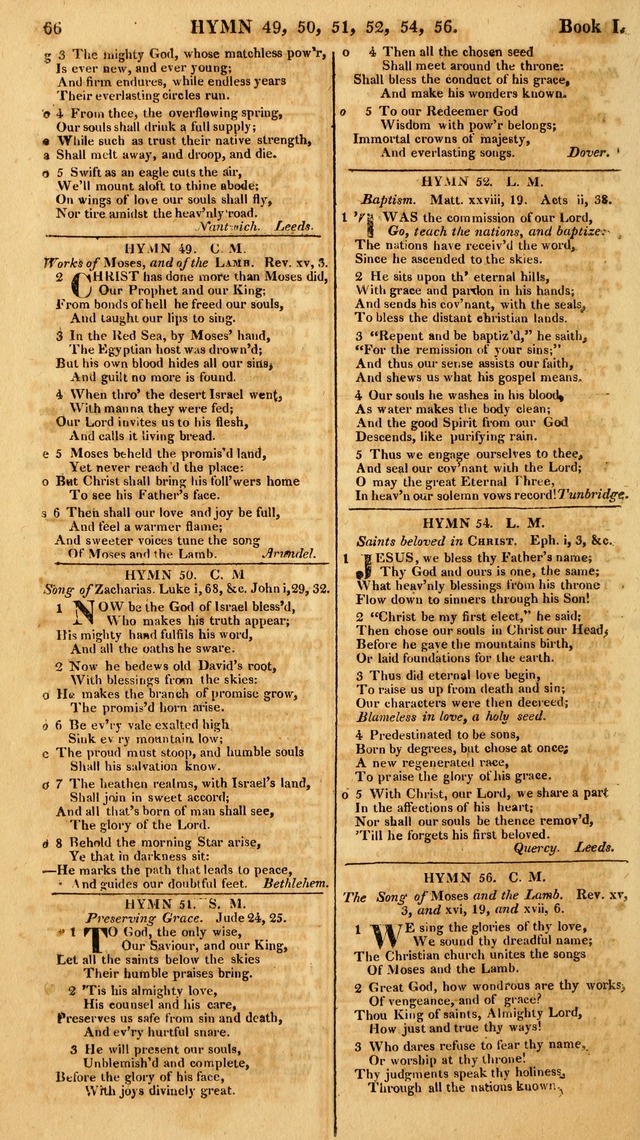 66 HYMN 49, 50, 51, 52, 54, 56. Book I.
g 3 The mighty God, whose matchless pow'r,
Is ever new, and ever young;
And firm endures, while endless years
Their everlasting circles run.
o 4 From thee, the overflowing spring,
Our souls shall drink a full supply;
e While such as trust their native strength,
a Shall melt away, and droop, and die.
o 5 Swift as an eagle cuts the air,
We'll mount aloft to thine abode;
On wings of love our souls shall fly,
Nor tire amidst the heav'nly road.
Nantwich. Leeds.
HYMN 49. C. M.
Works of Moses, and of the LAMB. Rev. xv, 3.
2 CHRIST has done more than Moses did,
Our Prophet and our King;
From bonds of hell he freed our souls,
And taught our lips to sing.
3 In the Red Sea, by Moses' hand,
The Egyptian host was drown'd;
But his own blood hides all our sins,
And guilt no more is found.
4 When thro' the desert Israel went,
With manna they were fed;
Our Lord invites us to his flesh,
And calls it living bread.
e 5 Moses beheld the promis'd land,
Yet never reach'd the place:
o But Christ shall bring his foll'wers home
To see his Father's face.
s 6 Then shall our love and joy be full,
And feel a warmer flame;
And sweeter voices tune the song
Of Moses and the Lamb. Arundel.
HYMN 50. C. M
Song of Zacharias. Luke i, 68, &c. John i, 29, 32.
1 NOW be the God of Israel bless'd,
Who makes his truth appear;
His mighty hand fulfils his word,
And all the oaths he sware.
2 Now he bedews old David's root,
With blessings from the skies:
o He makes the branch of promise grow,
The promis'd horn arise.
o 6 Be ev'ry vale exalted high
Sink ev'ry mountain low;
e The proud must stoop, and humble souls
Shall his salvation know.
o 7 The heathen realms, with Israel's land,
Shall join in sweet accord;
And all that's born of man shall see,
The glory of the Lord.
o 8 Behold the morning Star arise,
Ye that in darkness sit:
—He marks the path that leads to peace,
And guides our doubtful feet. Bethlehem.
HYMN 51. S. M.
Preserving Grace. Jude 24, 25.
1 TO God, the only wise,
Our Saviour, and our King,
Let all the saints below the skies
Their humble praises bring.
2 'Tis his almighty love,
His counsel and his care,
Preserves us safe from sin and death,
And ev'ry hurtful snare.
3 He will present our souls,
Unblemish'd and complete,
Before the glory of his face,
With joys divinely great.
o 4 Then all the chosen seed
Shall meet around the throne:
Shall bless the conduct of his grace,
And make his wonders known.
o 5 To our Redeemer God
Wisdom with pow'r belongs;
Immortal crowns of majesty,
And everlasting songs. Dover.
HYMN 52. L. M.
Baptism. Matt. xxviii, 19. Acts ii, 38.
1 'TWAS the commission of our Lord,
Go, teach the nations, and baptize:
The nations have receiv'd the word,
Since he ascended to the skies.
2 He sits upon th' eternal hills,
With grace and pardon in his hands;
And sends his cov'nant, with the seals,
To bless the distant christian lands.
3 "Repent and be baptiz'd," he saith,
"For the remission of your sins;"
And thus our sense assists our faith,
And shews us what his gospel means.
4 Our souls he washes in his blood,
As water makes the body clean;
And the good Spirit from our God
Descends, like purifying rain.
5 Thus we engage ourselves to thee,
And seal our cov'nant with the Lord;
O may the great Eternal Three,
In heav'n our solemn vows record! Tunbridge.
HYMN 54. L. M.
Saints beloved in CHRIST. Eph. i, 3, &c.
1 JESUS, we bless thy Father's name;
Thy God and ours is one, the same;
What heav'nly blessings from his throne
Flow down to sinners through his Son!
2 "Christ be my first elect," he said;
Then chose our souls in Christ our Head,
Before he gave the mountains birth,
Or laid foundations for the earth.
3 Thus did eternal love begin,
To raise us up from death and sin;
Our characters were then decreed;
Blameless in love, a holy seed.
4 Predestinated to be sons,
Born by degrees, but chose at once;
A new regenerated race,
To praise the glory of his grace.
o 5 With Christ, our Lord, we share a part
In the affections of his heart;
Nor shall our souls be thence remov'd,
'Till he forgets his first beloved.
Quercy. Leeds.
HYMN 56. C. M.
The Song of Moses and the Lamb. Rev. xv,
3, and xvi, 19, and xvii, 6.
1 WE sing the glories of thy love,
We sound thy dreadful name;
The Christian church unites the songs
Of Moses and the Lamb.
2 Great God, how wondrous are thy works,
Of vengeance, and of grace?
Thou King of saints, Almighty Lord,
How just and true thy ways!
3 Who dares refuse to fear thy name,
Or worship at thy throne!
Thy judgments speak thy holiness,
Through all the nations known.